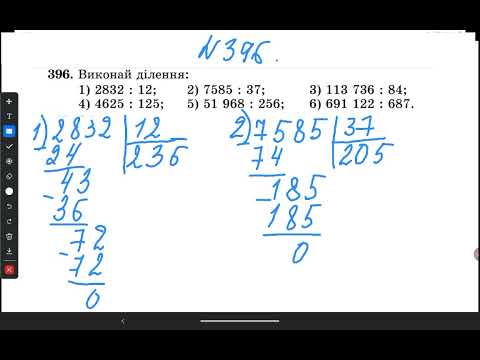 N396.
396. Виконай ділення:
1) 2832 : 12; 2) 7585 : 37; 3) 113 736 : 84;
4) 4625 : 125; 5) 51 968 : 256; 6) 691 122 : 687.
1) 2832 | 12
24 | 236
43
- 36
72
- 72
0
2) 7585 | 37
74 | 205
- 185
185
0